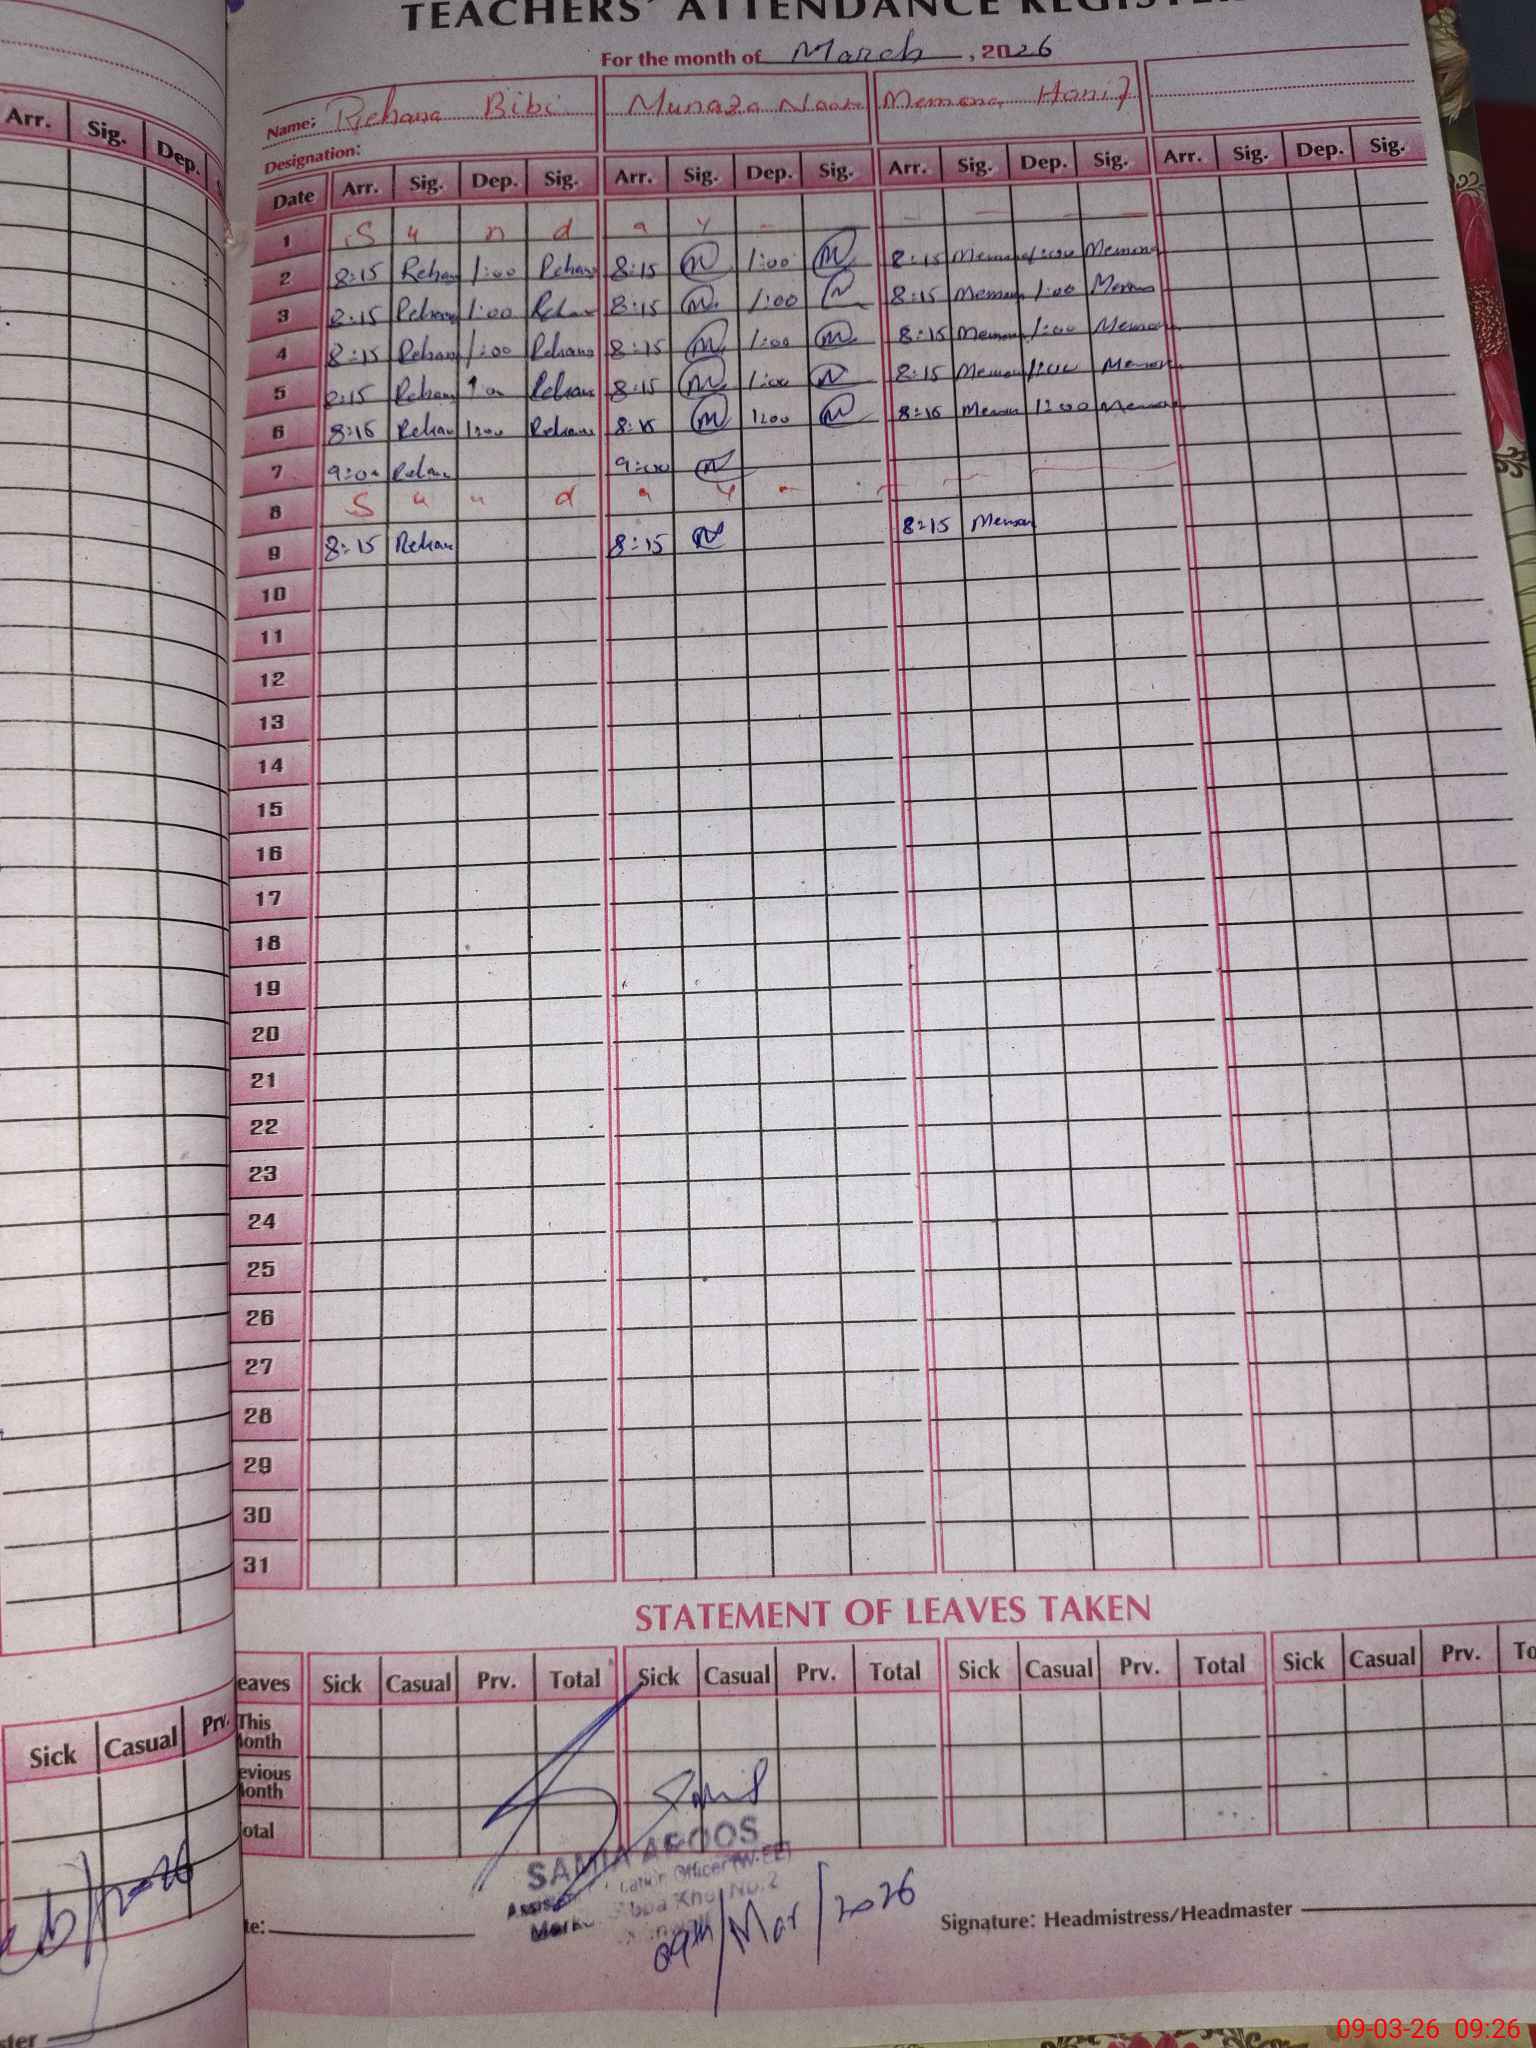 TEACHERS' ATTENDANCE REGISTER
For the month of March, 2026
Name: Rehana Bibi Munaza Memona Hanif
Designation:
Arr. Sig. Dep.
Date Arr. Sig. Dep. Sig. Arr. Sig. Dep. Sig. Arr. Sig. Dep. Sig. Arr. Sig. Dep. Sig.
1 S u n d a y
2 8:15 Rehan 1:00 Rehan 8:15 1:00 8:15 Memon 1:00 Memon
3 8:15 Rehan 1:00 Rehan 8:15 1:00 8:15 Memon 1:00 Memon
4 8:15 Rehan 1:00 Rehana 8:15 1:00 8:15 Memon 1:00 Memon
5 8:15 Rehan 1:00 Rehan 8:15 1:00 8:15 Memon 1:00 Memon
6 8:15 Rehan 1:00 Rehan 8:15 1:00 8:15 Memon 1:00 Memon
7 9:00 Rehan 9:00
8 S u n d a y
9 8:15 Rehan 8:15 8:15 Memon
10
11
12
13
14
15
16
17
18
19
20
21
22
23
24
25
26
27
28
29
30
31
STATEMENT OF LEAVES TAKEN
eaves Sick Casual Prv. Total Sick Casual Prv. Total Sick Casual Prv. Total Sick Casual Prv. To
This
onth
evious
onth
otal
Sick Casual Prv.
SAMIA AFOOS
Officer (W-EE)
No.2
09th/Mar/2026
te:
Signature: Headmistress/Headmaster
ster
09-03-26 09:26